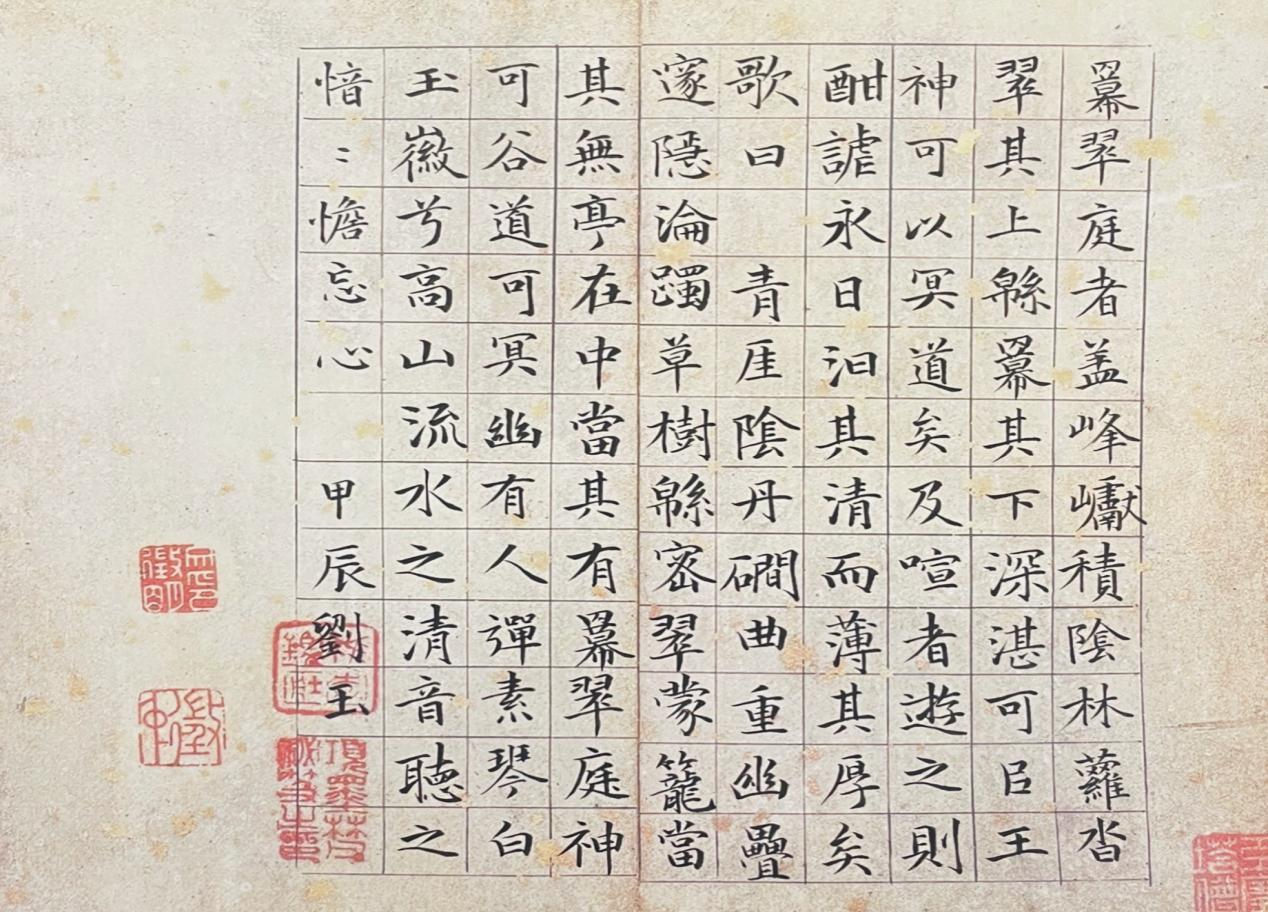 羃翠庭者盖峰巘積陰林蘿沓
翠其上緜羃其下深湛可㠯王
神可以冥道矣及喧者遊之則
酣謔永日汩其清而薄其厚矣
歌曰　青厓陰丹磵曲重幽疊
邃隱淪躅草樹緜密翠蒙籠當
其無亭在中當其有羃翠庭神
可谷道可冥幽有人彈素琴白
玉徽兮高山流水之清音聽之
愔〻憺忘心　甲辰劉玉
項墨林父秘笈之印